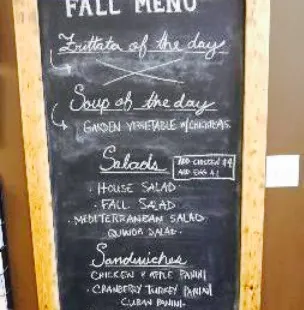 FALL MENU
Frittata of the day
Soup of the day
GARDEN VEGETABLE w/CHICKPEAS
Salads
ADD CHICKEN $4
ADD EGG $1
· HOUSE SALAD
· FALL SALAD
· MEDITERRANEAN SALAD
QUINOA SALAD
Sandwiches
CHICKEN & APPLE PANINI
· CRANBERRY TURKEY PANINI
CUBAN PANINI